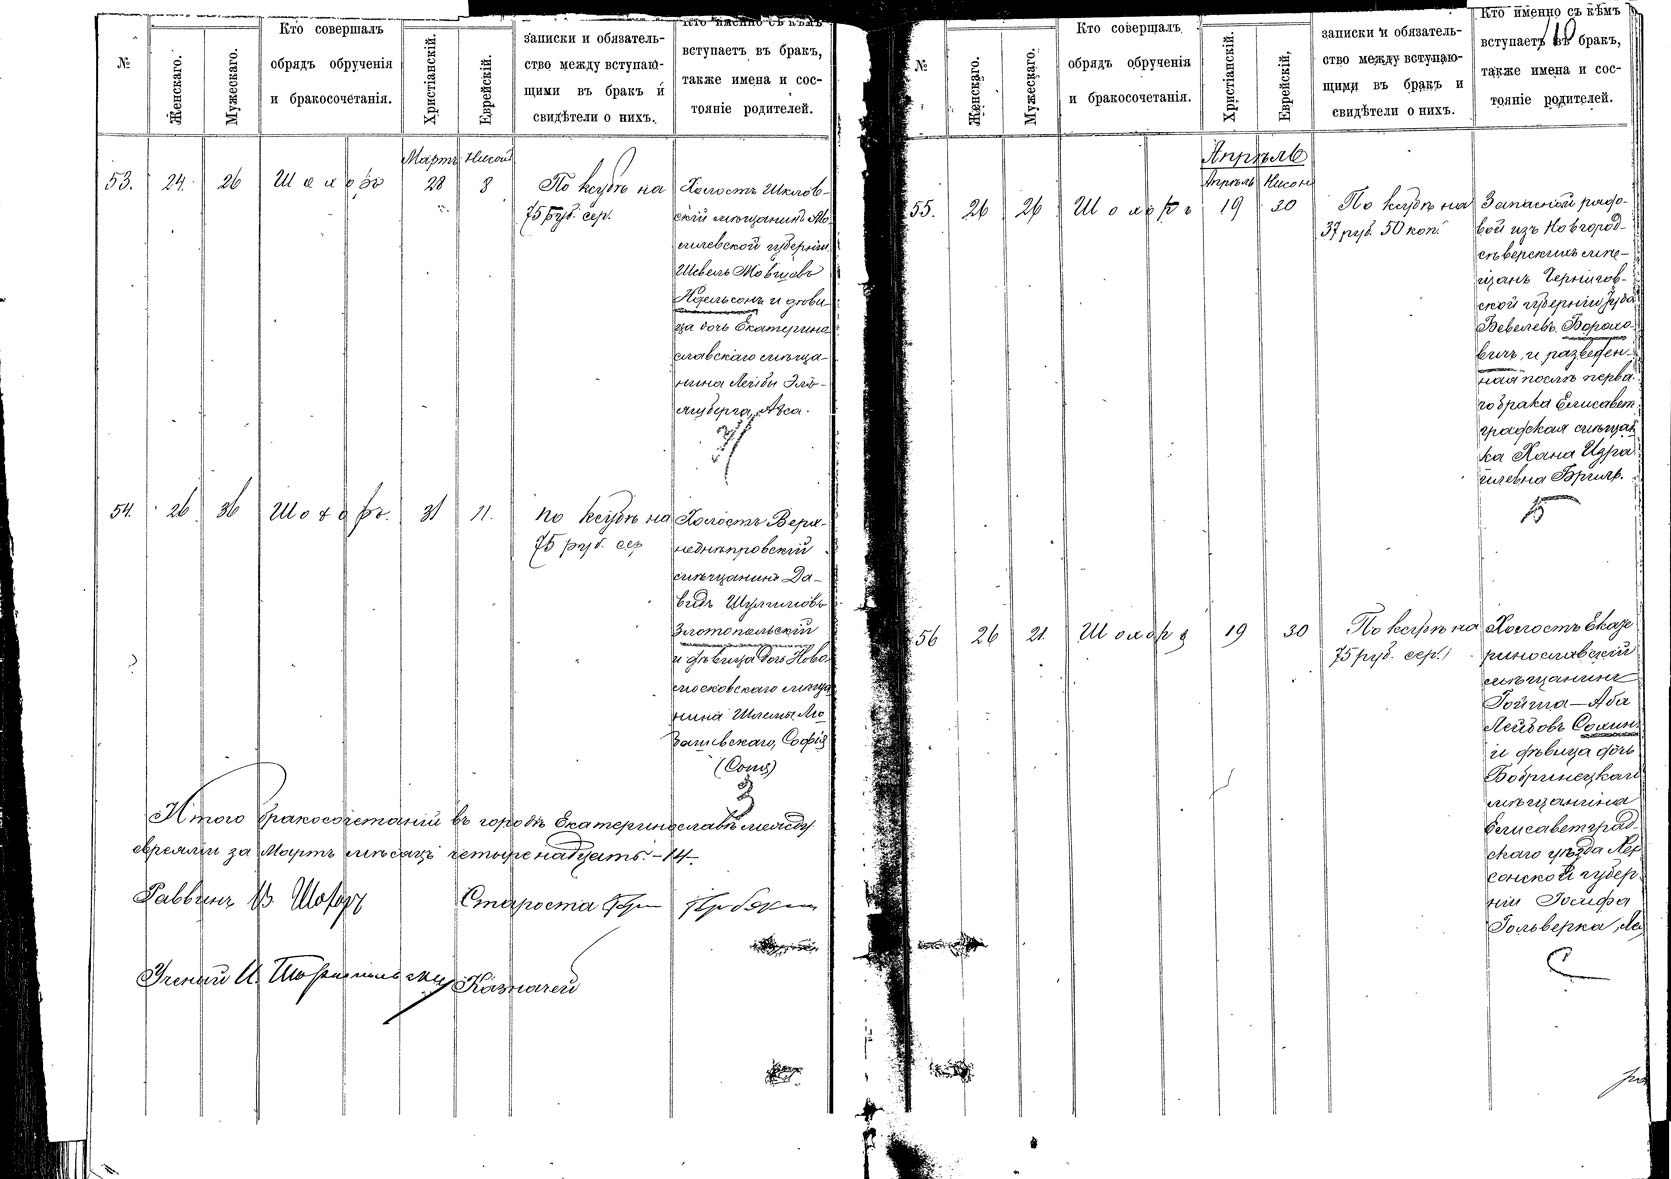 №
Женскаго.
Мужескаго.
Кто совершалъ
обрядъ обрученія
и бракосочетанія.
Христіанскій.
Еврейскій.
записки и обязатель-
ство между вступаю-
щими въ бракъ и
свидѣтели о нихъ.
Кто именно съ кѣмъ
вступаетъ въ бракъ,
также имена и сос-
тояніе родителей.
Мартъ Нисонъ
53. 24. 26 Шохоръ 28 8
По ксубѣ на
75 руб. сер.
Холостъ Шклов-
скій мѣщанинъ Мо-
гилевской губерніи
Шевель Мовшовъ
и дѣви-
ца дочь Екатерино-
славскаго мѣща-
нина Лейбы
54. 26 36 Шохоръ. 31 11.
по ксубѣ на
75 руб. сер
Холостъ Верх-
неднѣпровскій
мѣщанинъ Да-
видъ Шулимовъ
Златопольскій
и дѣвица дочь Ново
московскаго мѣща
нина Шлемы
Софія
(Соня)
3
Итого бракосочетаній въ городѣ Екатеринославѣ между
евреями за Мартъ мѣсяцъ четырнадцать. - 14.
Раввинъ В Шохоръ Староста
Ученый И. Казначей
№
Женскаго.
Мужескаго.
Кто совершалъ
обрядъ обрученія
и бракосочетанія.
Христіанскій.
Еврейскій.
записки и обязатель-
ство между вступаю-
щими въ бракъ и
свидѣтели о нихъ.
Кто именно съ кѣмъ
вступаетъ въ бракъ,
также имена и сос-
тояніе родителей.
110
Апрѣль
Апрѣль Нисонъ
55. 26 26 Шохоръ 19 30
По ксубѣ на
37 руб. 50 коп.
Запасной рядо-
вой изъ Новгород-
сѣверскихъ мѣ-
щанъ Чернигов-
ской губерніи
Вевелевъ Борохо-
вичъ, и разведен-
ная послѣ перва-
го брака Елисавет
градская мѣщан
ка Хана Изра
илевна Бриль.
56 26 21. Шохоръ 19 30
По ксубѣ на
75 руб. сер.
Холостъ Екате
ринославскій
мѣщанинъ
Аба
Лейбовъ Сохинъ
и дѣвица дочь
Бобринецкаго
мѣщанина
Елисаветград
скаго уѣзда Хер
сонской губер
ніи Іосифа
Гольверка, Лея